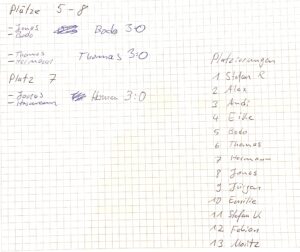 Plätze 5-8
- Jonas
- Bodo
Bodo 3:0
- Thomas
- Hermann
Thomas 3:0
Platz 7
- Jonas
- Hermann
Herman 3:0
Platzierungen
1 Stefan R
2 Alex
3 Andi
4 Eike
5 Bodo
6 Thomas
7 Hermann
8 Jonas
9 Jürgen
10 Emilie
11 Stefan K
12 Fabian
13 Moritz